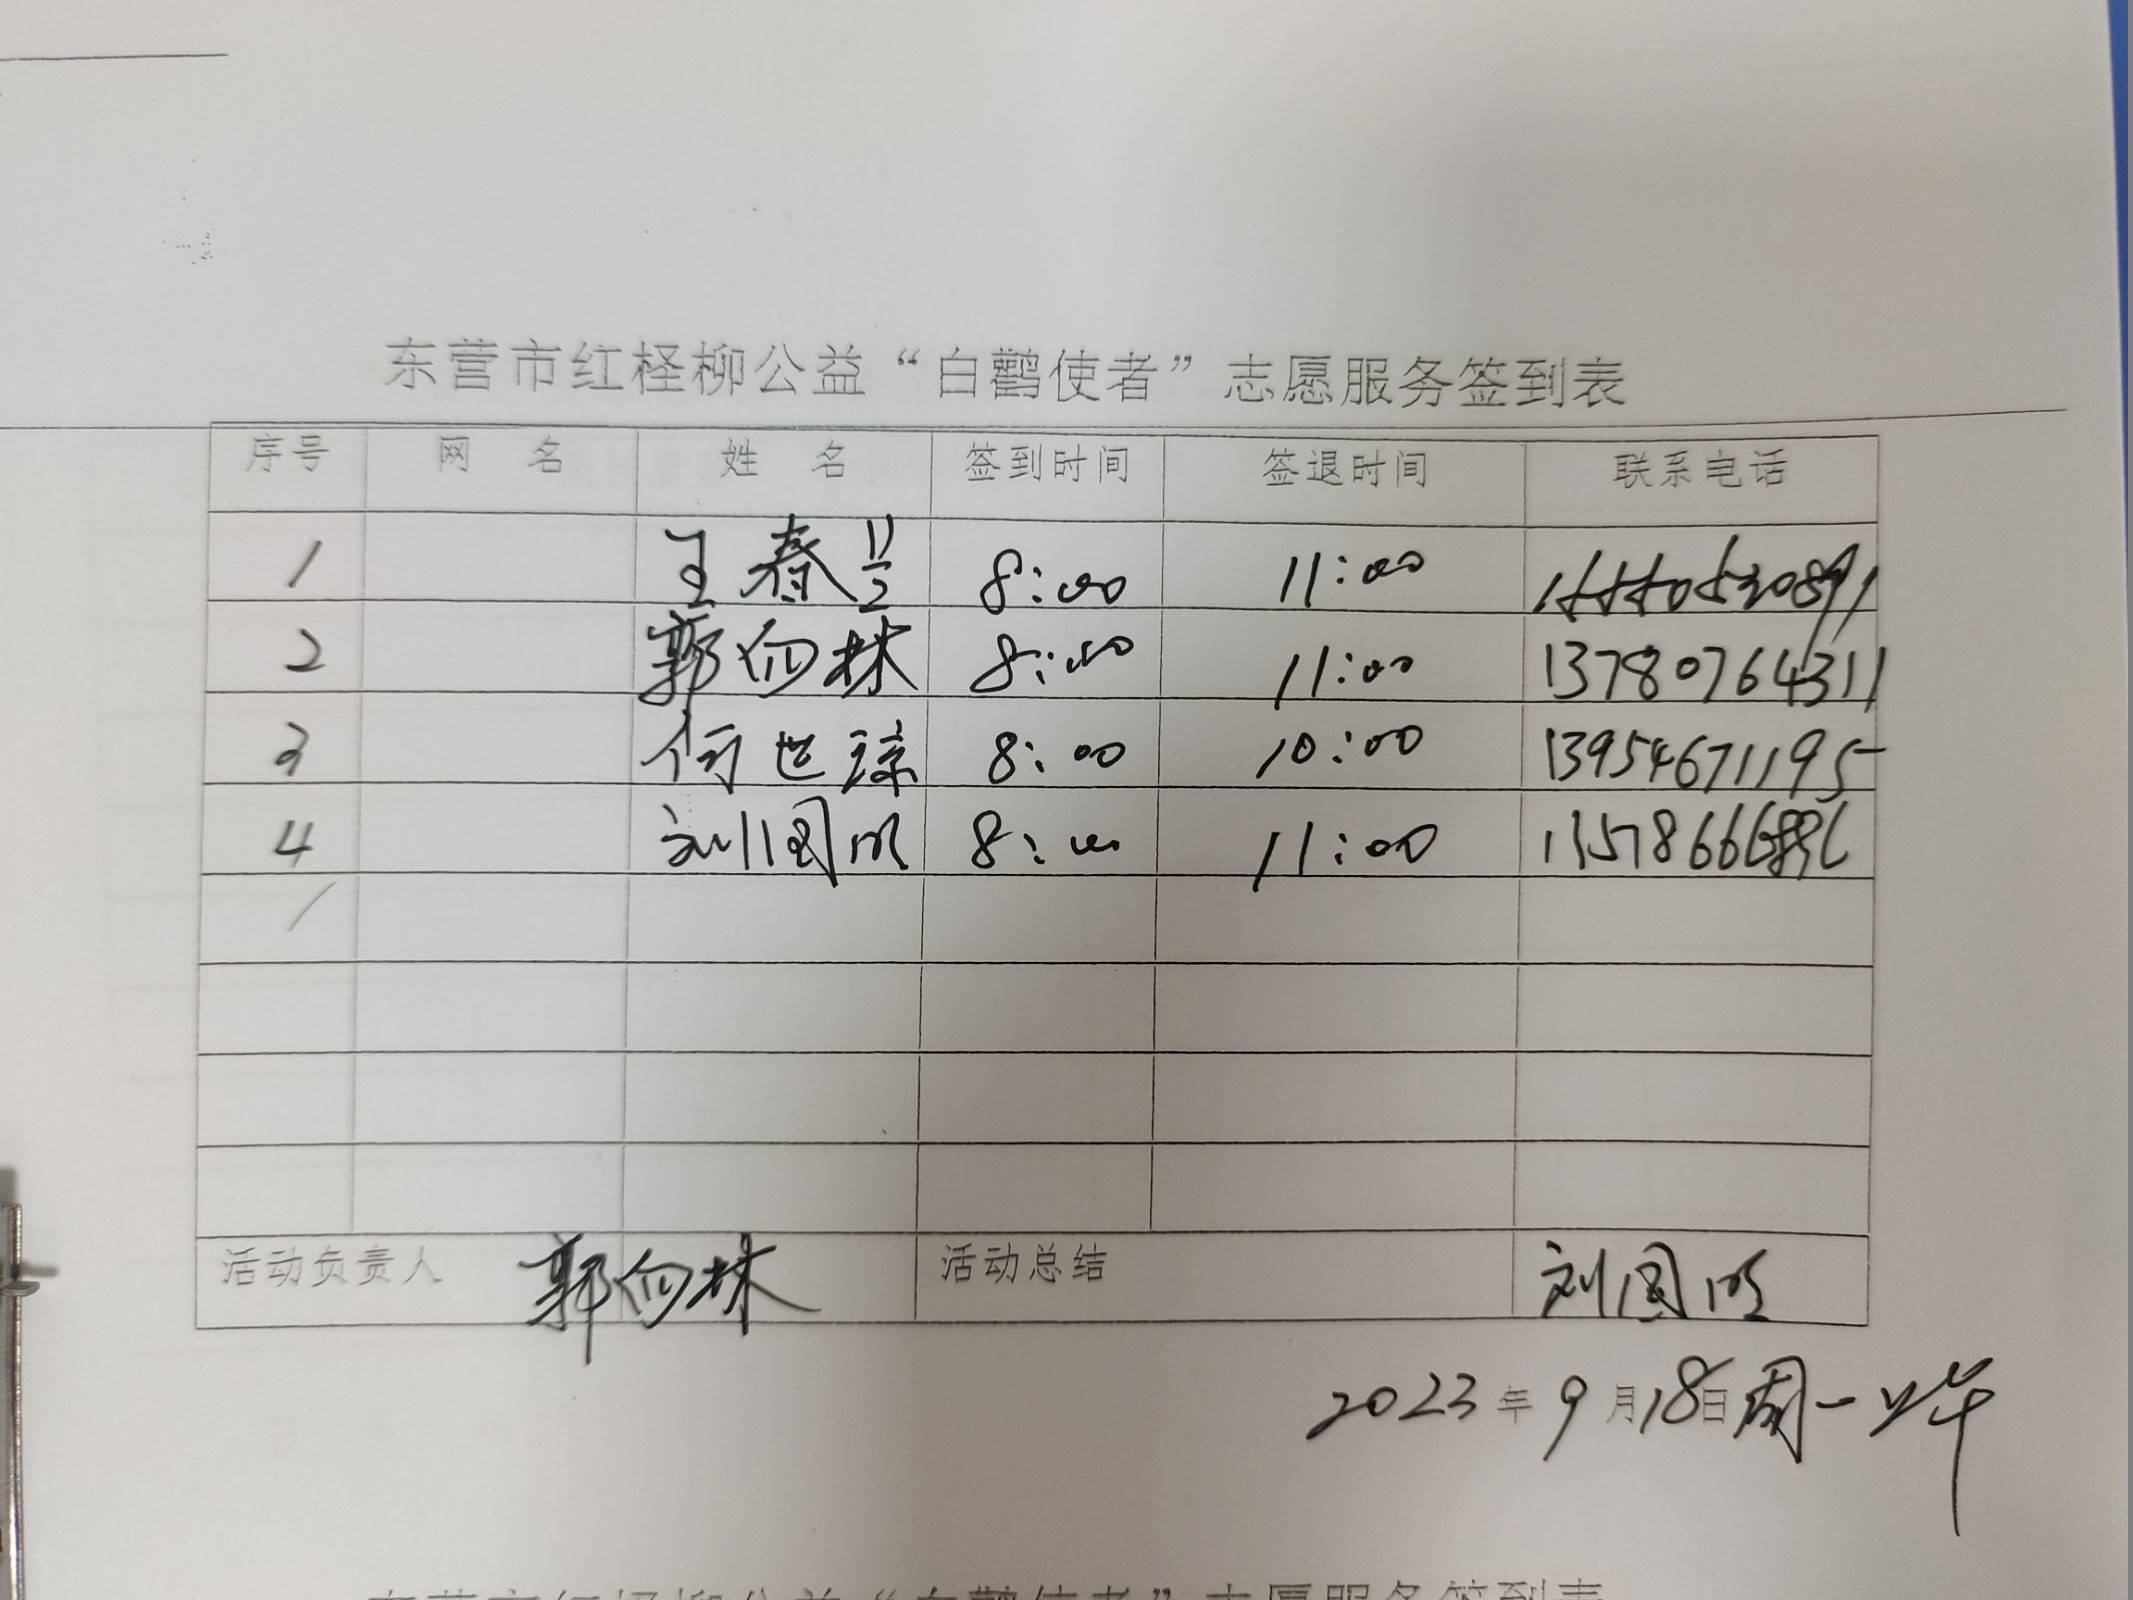 东营市红柽柳公益“白鹳使者”志愿服务签到表
序号 网 名 姓 名 签到时间 签退时间 联系电话
1 王春兰 8:00 11:00
2 郭向林 8:00 11:00 13780764311
3 何世琼 8:00 10:00 13954671195
4 刘国明 8:00 11:00
活动负责人 郭向林 活动总结 刘国明
2023年9月18日周一上午
东营市红柽柳公益“白鹳使者”志愿服务签到表